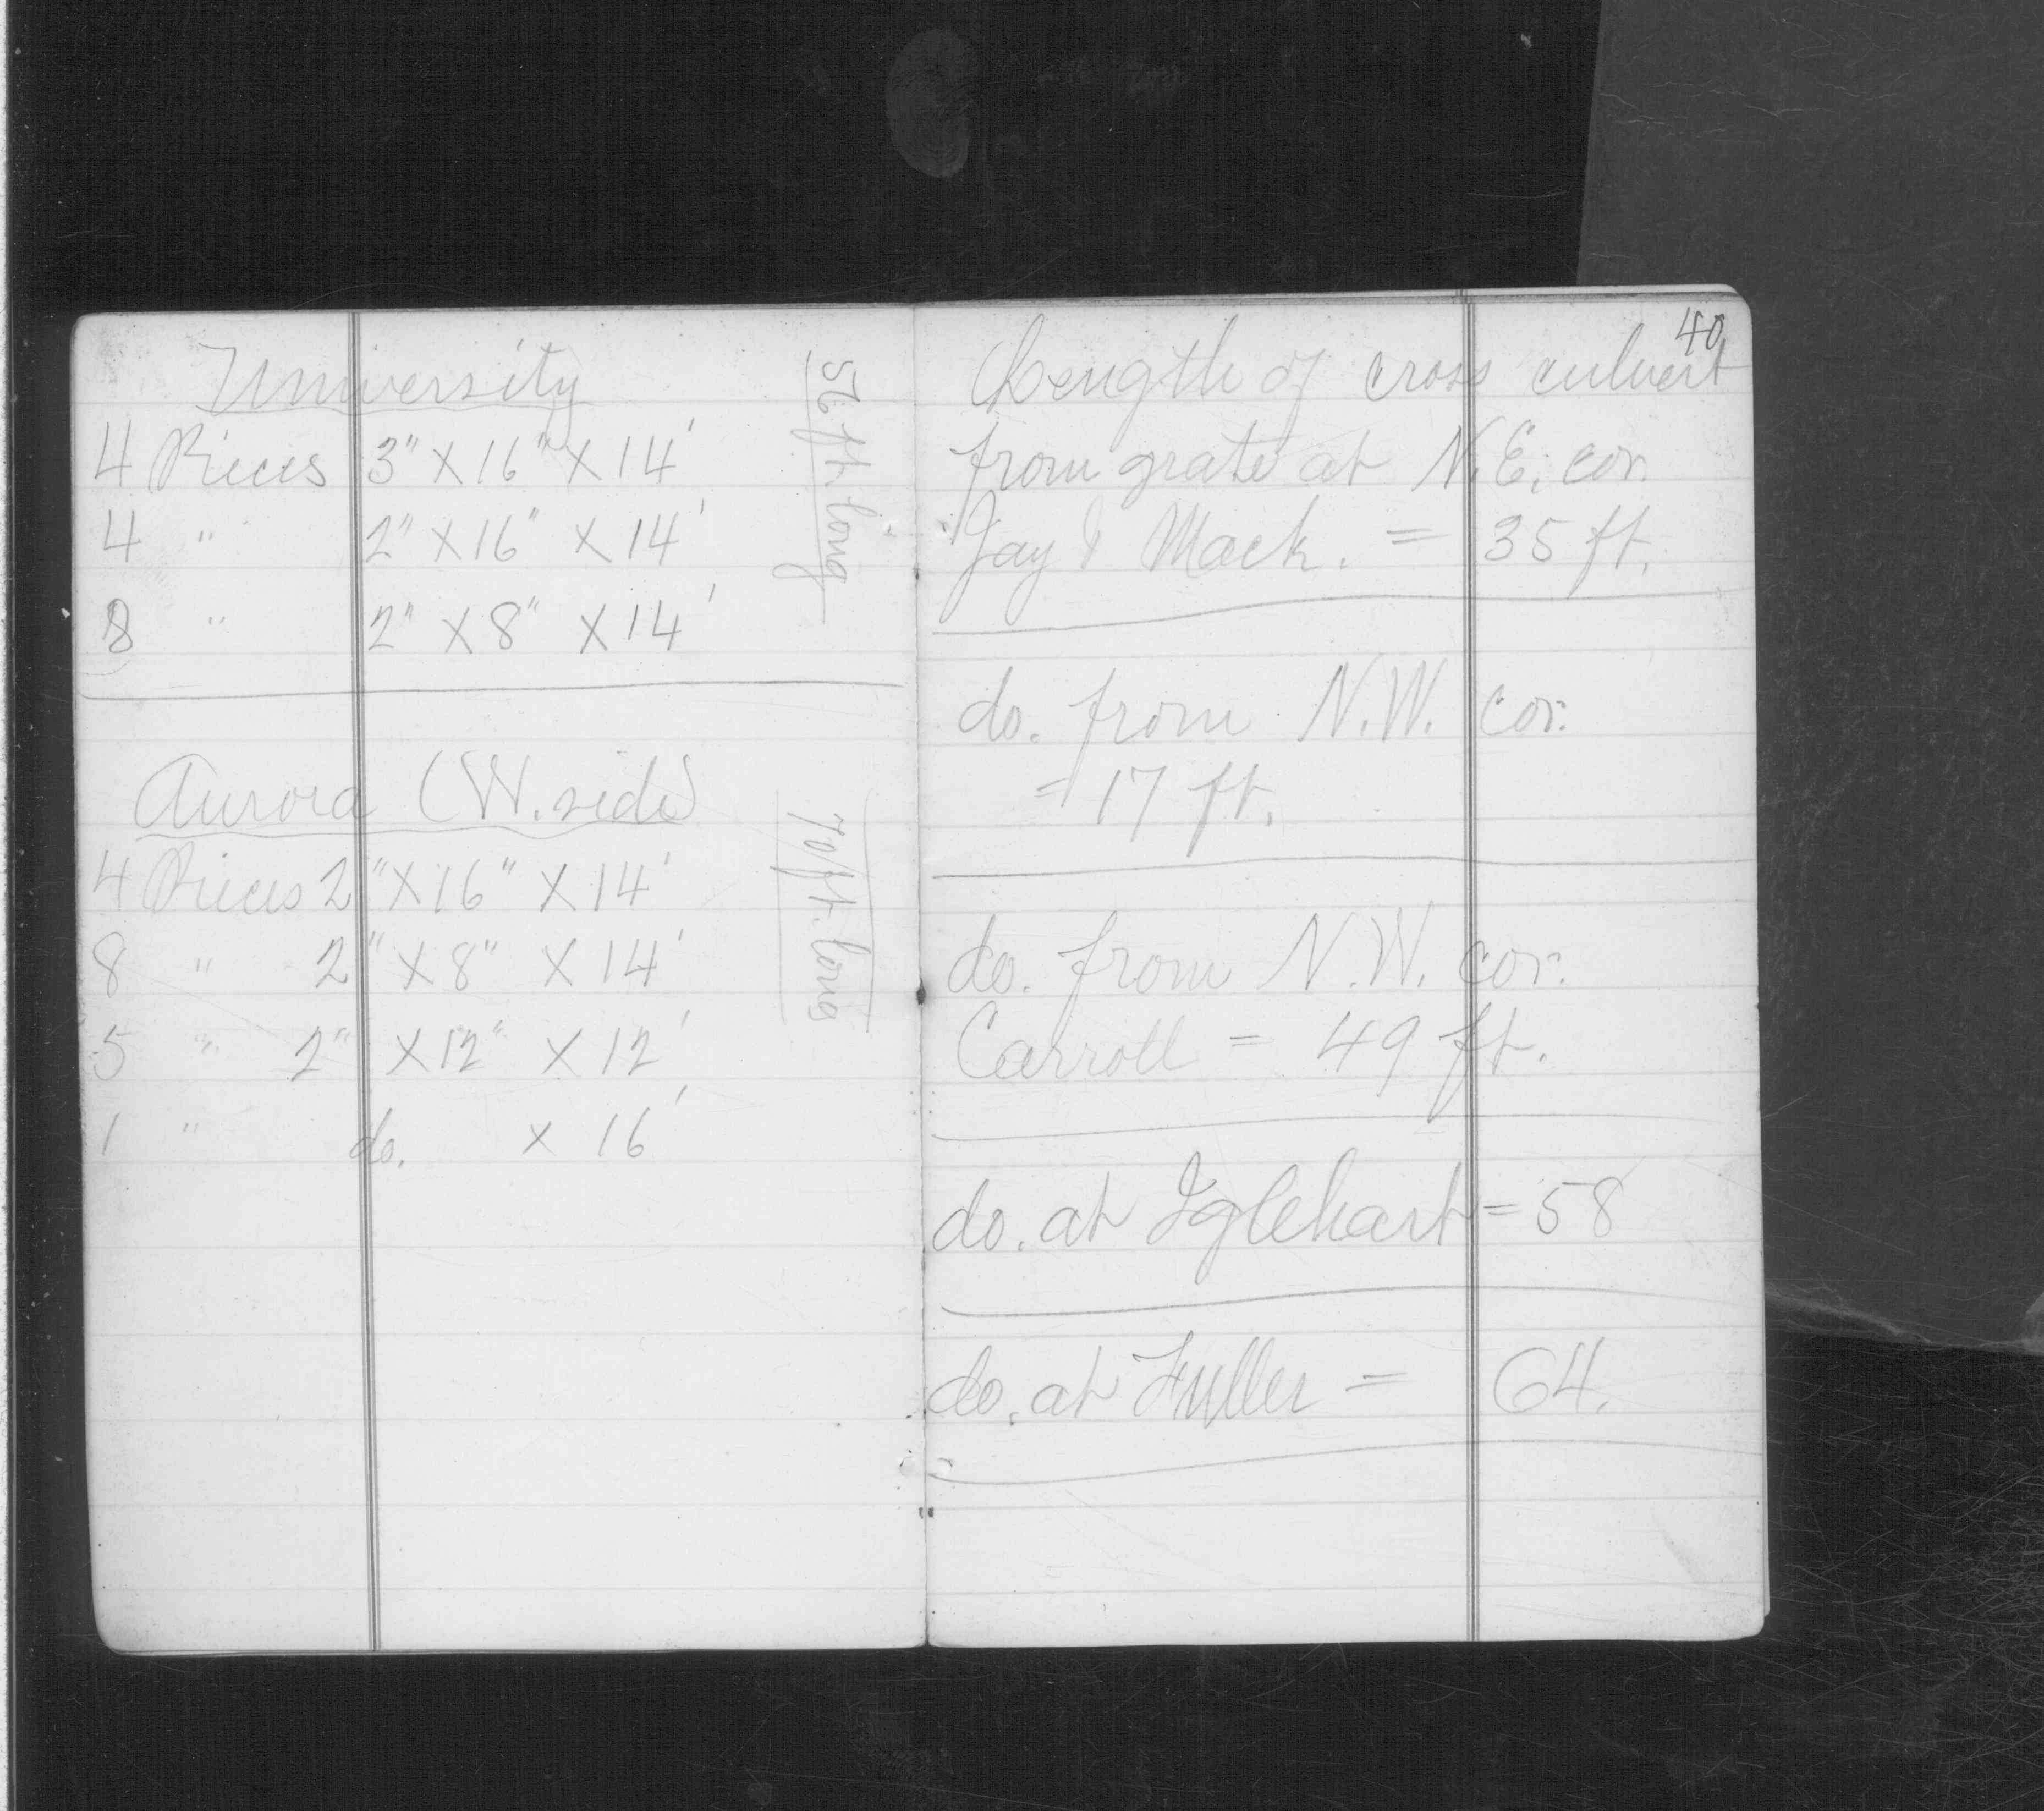 University
4 Pieces 3" X 16" X 14'
4 " 2" X 16" X 14'
8 " 2" X 8" X 14'
56 ft. long
Aurora (W. side)
4 Pieces 2" X 16" X 14'
8 " 2" X 8" X 14'
5 " 2" X 12" X 12'
1 " do. x 16'
70 ft. long
40
Length of cross culvert
from grate at N.E. cor.
Jay & Mack. = 35 ft.
do. from N.W. cor.
= 17 ft.
do. from N.W. cor.
Carroll = 49 ft.
do. at Iglehart = 58
do. at Fuller = 64.